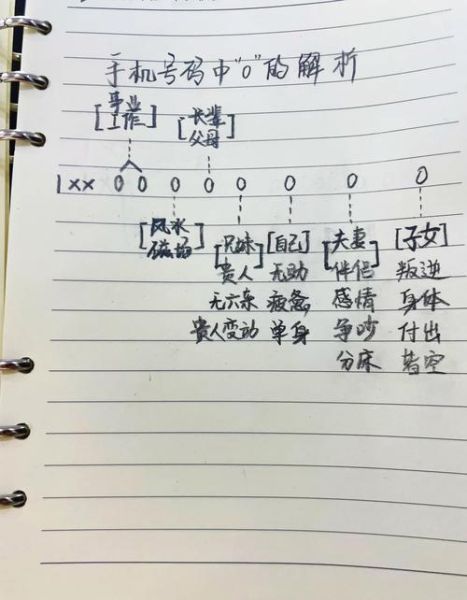 手机号码中"0"的解析
[事业 工作] [长辈 父母]
1xx 0 0 0 0 0 0 0 0
[风水 磁场] [兄妹] [自己] [夫妻] [子女]
贵人 无助 伴侣 叛逆
无六亲 疲惫 感情 身体
贵人变动 单身 争吵 付出
分床 落空